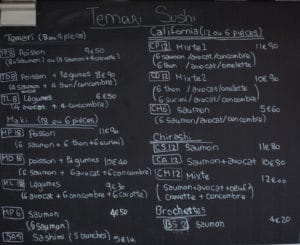 Temari Sushi
Temari (8 ou 4 pièces)
Poisson 9€50
TDB Poisson + Légumes 8€90
TLB Légumes 6€50
(4 avocat + 4 concombre)
Maki (18 ou 6 pièces)
MP18 Poisson 11€90
(6 saumon + 6 thon + 6 surimi)
MD18 poisson + légumes 10€40
(6 saumon + 6 avocat + 6 concombre)
Légumes 9€30
(6 avocat + 6 concombre + 6 carotte)
MP6 Saumon 4€50
(6 saumon)
SA5 Sashimi (5 tranches)
California (12 ou 6 pièces)
CP12 Mixte 1 11€90
(6 saumon/avocat/concombre)
6 thon/avocat/omelette
CD12 Mixte 2 10€90
(6 thon/avocat/omelette
6 surimi/avocat/concombre)
CM6 Saumon 5€60
(6 saumon/avocat/concombre)
Chirashi
CS12 Saumon 11€80
CA12 Saumon + avocat 10€80
CM12 Mixte 12€00
(Saumon + avocat + oeuf +
crevette + concombre)
Brochettes
BS2 Saumon 4€20